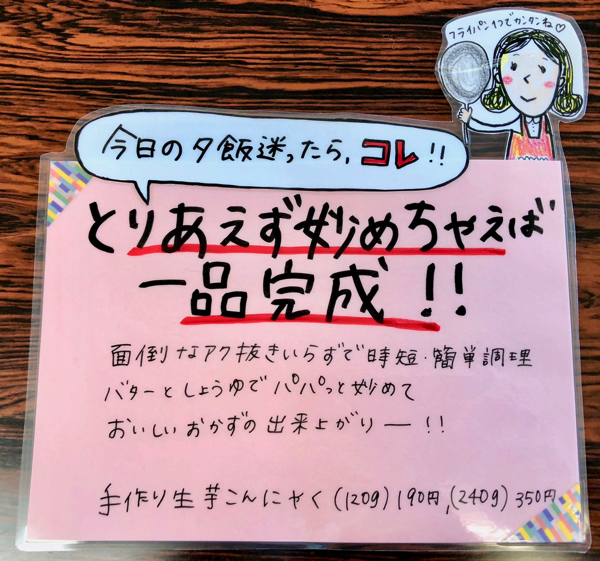 フライパン1つでカンタンね♡
今日の夕飯迷ったら、コレ!!
とりあえず妙めちゃえば
一品完成!!
面倒なアク抜きいらずで時短・簡単調理
バターとしょうゆでパパっと妙めて
おいしいおかずの出来上がりー!!
手作り生芋こんにゃく(120g)190円,(240g)350円